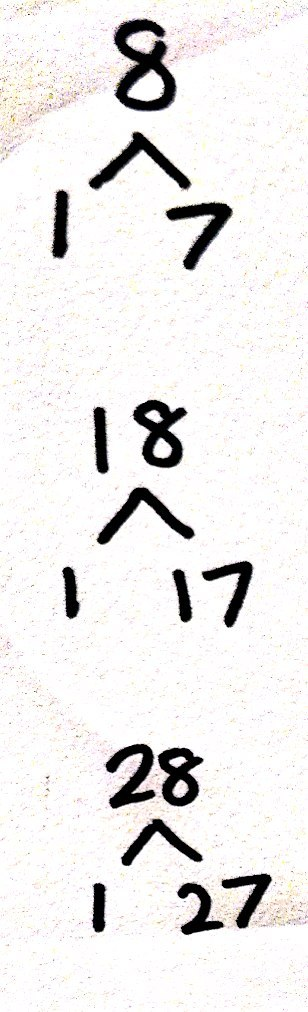 8
1 7
18
1 17
28
1 27